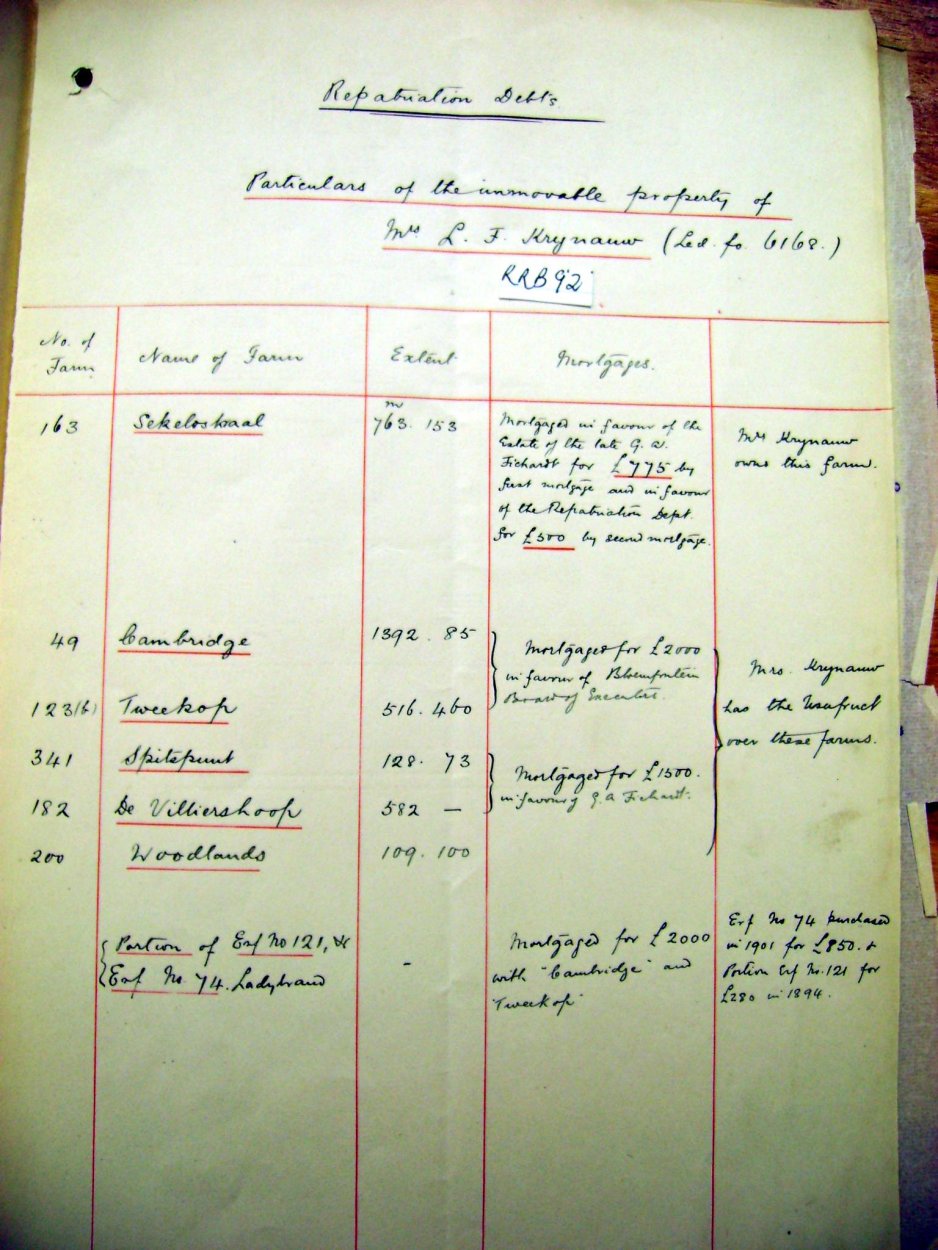 Repatriation Debts
Particulars of the immovable property of
Mrs L. F. Krynauw (Led. fo. 6168.)
RRB92
No. of
Farm
Name of Farm
Extent
Mortgages.
163
Sekeloskraal
m
763. 153
Mortgaged in favour of the
Estate of the late G. A.
Fichardt for £775 by
first mortgage and in favour
of the Repatriation Dept.
for £500 by second mortgage.
Mrs Krynauw
owns this farm.
49
Cambridge
1392. 85
123(b)
Tweekop
516. 460
Mortgaged for £2000
in favour of Bloemfontein
Board of Executors.
341
Spitspunt
128. 73
182
De Villiershoop
582 —
Mortgaged for £1500.
in favour of G. A Fichardt.
200
Woodlands
109. 100
Mrs. Krynauw
has the Usufruct
over these farms.
Portion of Erf No 121, &
Erf No. 74. Ladybrand
-
Mortgaged for £2000
with "Cambridge" and
"Tweekop"
Erf No 74 purchased
in 1901 for £850. &
Portion Erf No. 121 for
£280 in 1894.